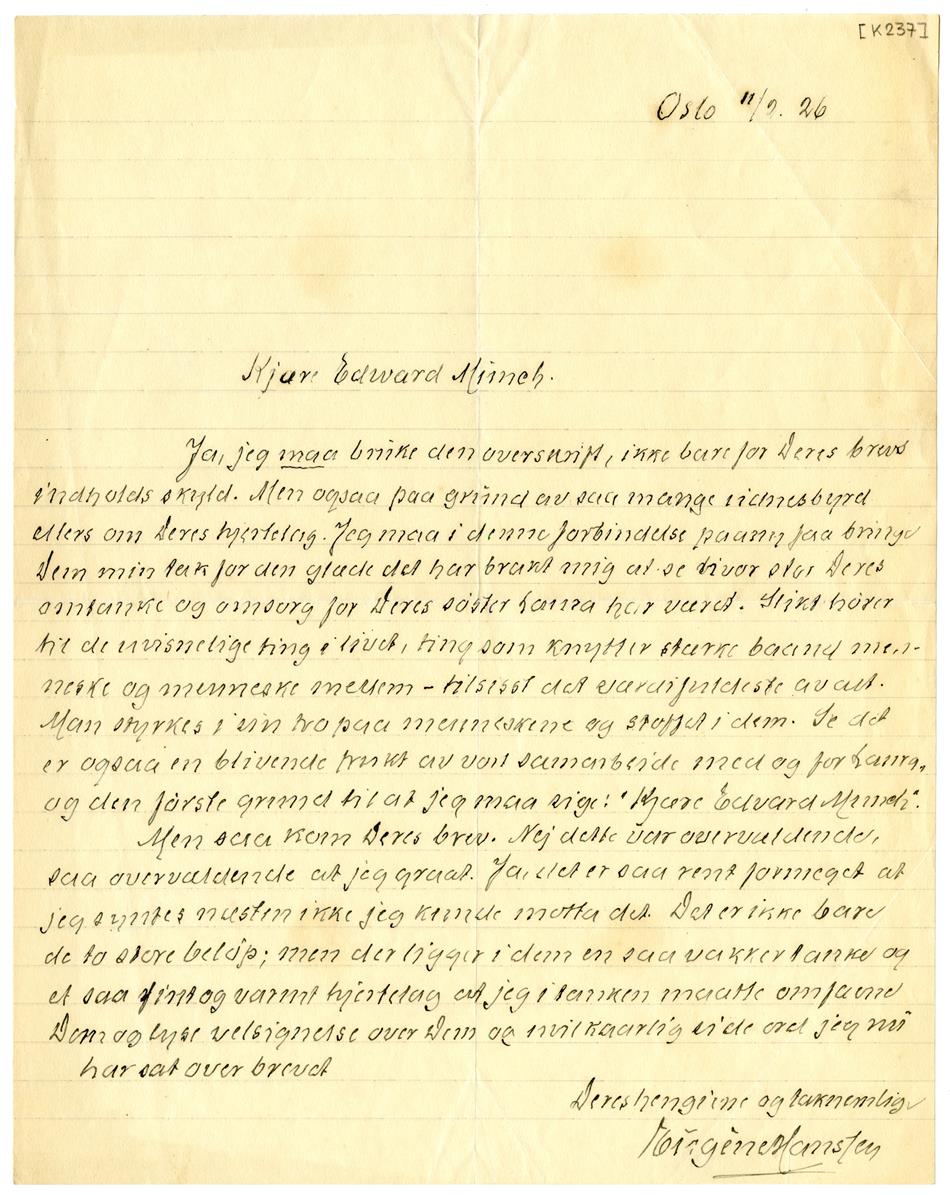 [K237]
Oslo 11/2. 26
Kjære Edward Münch.
Ja, jeg maa bruke den overskrift, ikke bare for Deres brevs
indholds skyld. Men ogsaa paa grund av saa mange vidnesbyrd
ellers om Deres hjertelag. Jeg maa i denne forbindelse paany faa bringe
Dem min tak for den glæde det har brakt mig at se hvor stor Deres
omtanke og omsorg for Deres søster Laura har været. Slikt hører
til de uvisnelige ting i livet, ting som knytter stærke baand men-
neske og menneske mellem – tilsisst det værdifuldeste av alt.
Man styrkes i sin tro paa menneskene og stoffet i dem. Se det
er ogsaa en blivende frukt av vort samarbeide med og for Laura,
og den første grund til at jeg maa sige: "Kjære Edvard Munch".
Men saa kom Deres brev. Nej dette var overvældende,
saa overvældende at jeg graat. Ja, det er saa rent formeget at
jeg syntes næsten ikke jeg kunde motta det. Det er ikke bare
de to store beløp; men der ligger i dem en saa vakker tanke og
et saa fint og varmt hjertelag at jeg i tanken maatte omfavne
Dem og lyse velsignelse over Dem og uvilkaarlig si de ord jeg nu
har sat over brevet
Deres hengivne og taknemlige
Eugène Hanssen